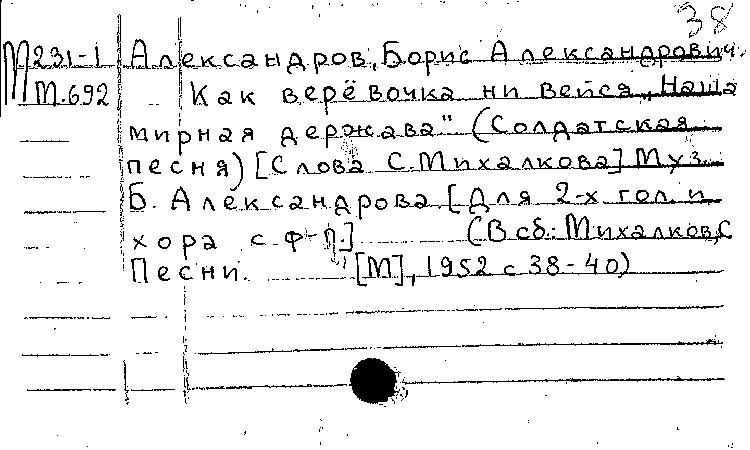 38
М231-1 Александров, Борис Александрович.
М.692 Как верёвочка ни вейся „Наша
мирная держава" (Солдатская
песня) [Слова С.Михалкова] Муз.
Б. Александрова [Для 2-х гол. и
хора с ф-п.] (В сб.: Михалков,С
Песни. [М], 1952 с 38-40)